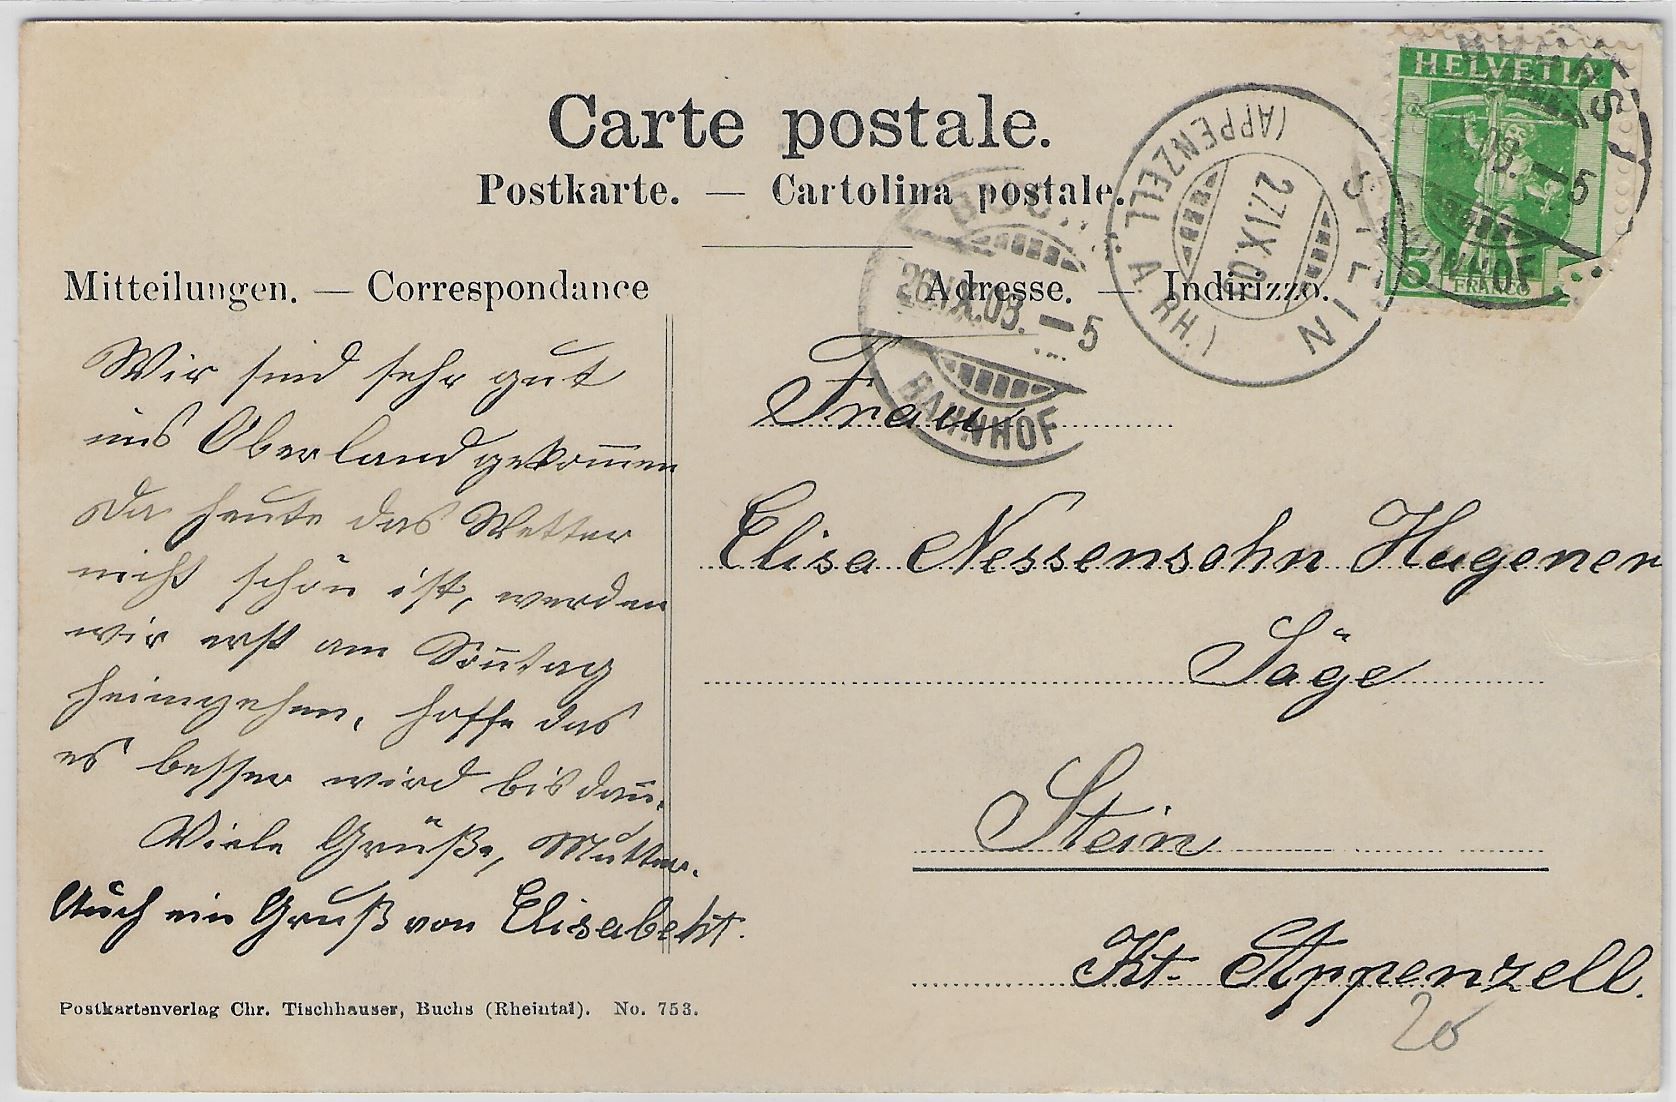 Carte postale.
Postkarte. — Cartolina postale.
Mitteilungen. — Correspondance
Adresse. — Indirizzo.
HELVETIA
5
FRANCO
STEIN
(APPENZELL A. RH.)
27.IX.09
BUCHS
26.IX.09. – 5
BAHNHOF
BUCHS
IX.09. – 5
BAHNHOF
Wir sind sehr gut
ins Oberland gekom̅en
Da heute das Wetter
nicht schön ist, werden
wir erst am Son̅tag
heimgehen, hoffe das
es besser wird bis dan̅.
Viele Grüße, Mutter.
Auch ein Gruß von Elisabeht.
Frau
Elisa Nessensohn Hugener
Säge
Stein
Kt. Appenzell.
20
Postkartenverlag Chr. Tischhauser, Buchs (Rheintal). No. 753.